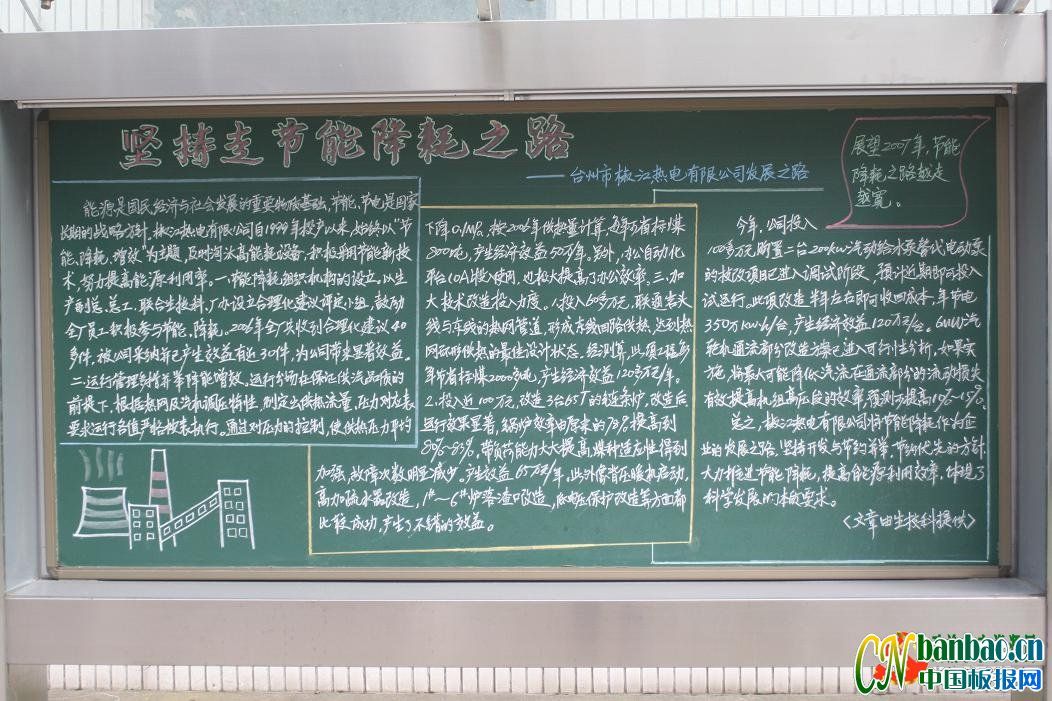 坚持走节能降耗之路
——台州市椒江热电有限公司发展之路
能源是国民经济与社会发展的重要物质基础,节能、节电是国家
长期的战略方针,椒江热电有限公司自1999年投产以来,始终以“节
能、降耗、增效”为主题,及时淘汰高能耗设备,积极采用节能新技
术,努力提高能源利用率。一.节能降耗组织机构的设立,以生
产副总、总工,联合生技科,厂办设立合理化建议评定小组,鼓励
全厂员工积极参与节能、降耗,2006年全厂共收到合理化建议40
多件,被公司采纳并已产生效益有近30件,为公司带来显著效益。
二.运行管理多措并举降能增效,运行分场在保证供汽品质的
前提下,根据热网及汽机调压特性,制定出供热流量,压力对应表
要求运行各值严格按表执行。通过对压力的控制,使供热压力平均
下降0.1MPa,按2006年供热量计算,每年可省标煤
800吨,产生经济效益50万/年。另外,办公自动化
平台(OA)投入使用,也极大提高了办公效率。三.加
大技术改造投入力度。1.投入60多万元,联通老头
线与东线的热网管道,形成东线回路供热,达到热
网环形供热的最佳设计状态。经测算,此项工程每
年节省标煤2000多吨,产生经济效益120多万元/年。
2.投入近100万元,改造3台65T的链条炉,改造后
运行效果显著,锅炉效率由原来的78%提高到
80%-83%,带负荷能力大大提高,煤种适应性得到
加强,故障次数明显减少。产生效益65万元/年,此外像背压暖机启动,
高加疏水器改造,1#~6#炉落渣口改造,低电压保护改造等方面都
比较成功,产生了不错的效益。
展望2007年,节能
降耗之路越走
越宽。
今年,公司投入
100多万元购置二台200kW汽动给水泵替代电动泵
的技改项目已进入调试阶段,预计近期即可投入
试运行,此项改造半年左右即可收回成本,年节电
350万kwh/台,产生经济效益120万元/台。6MW汽
轮机通流部分改造方案已进入可行性分析,如果实
施,将最大可能降低汽流在通流部分的流动损失
有效提高机组高压段的效率,预测为提高10%-15%。
总之,椒江热电有限公司将节能降耗作为企
业的发展之路,坚持开发与节约并举,节约优先的方针,
大力推进节能降耗,提高能源利用效率,体现了
科学发展的本质要求。
<文章由生技科提供>
CN banbao.cn
中国板报网